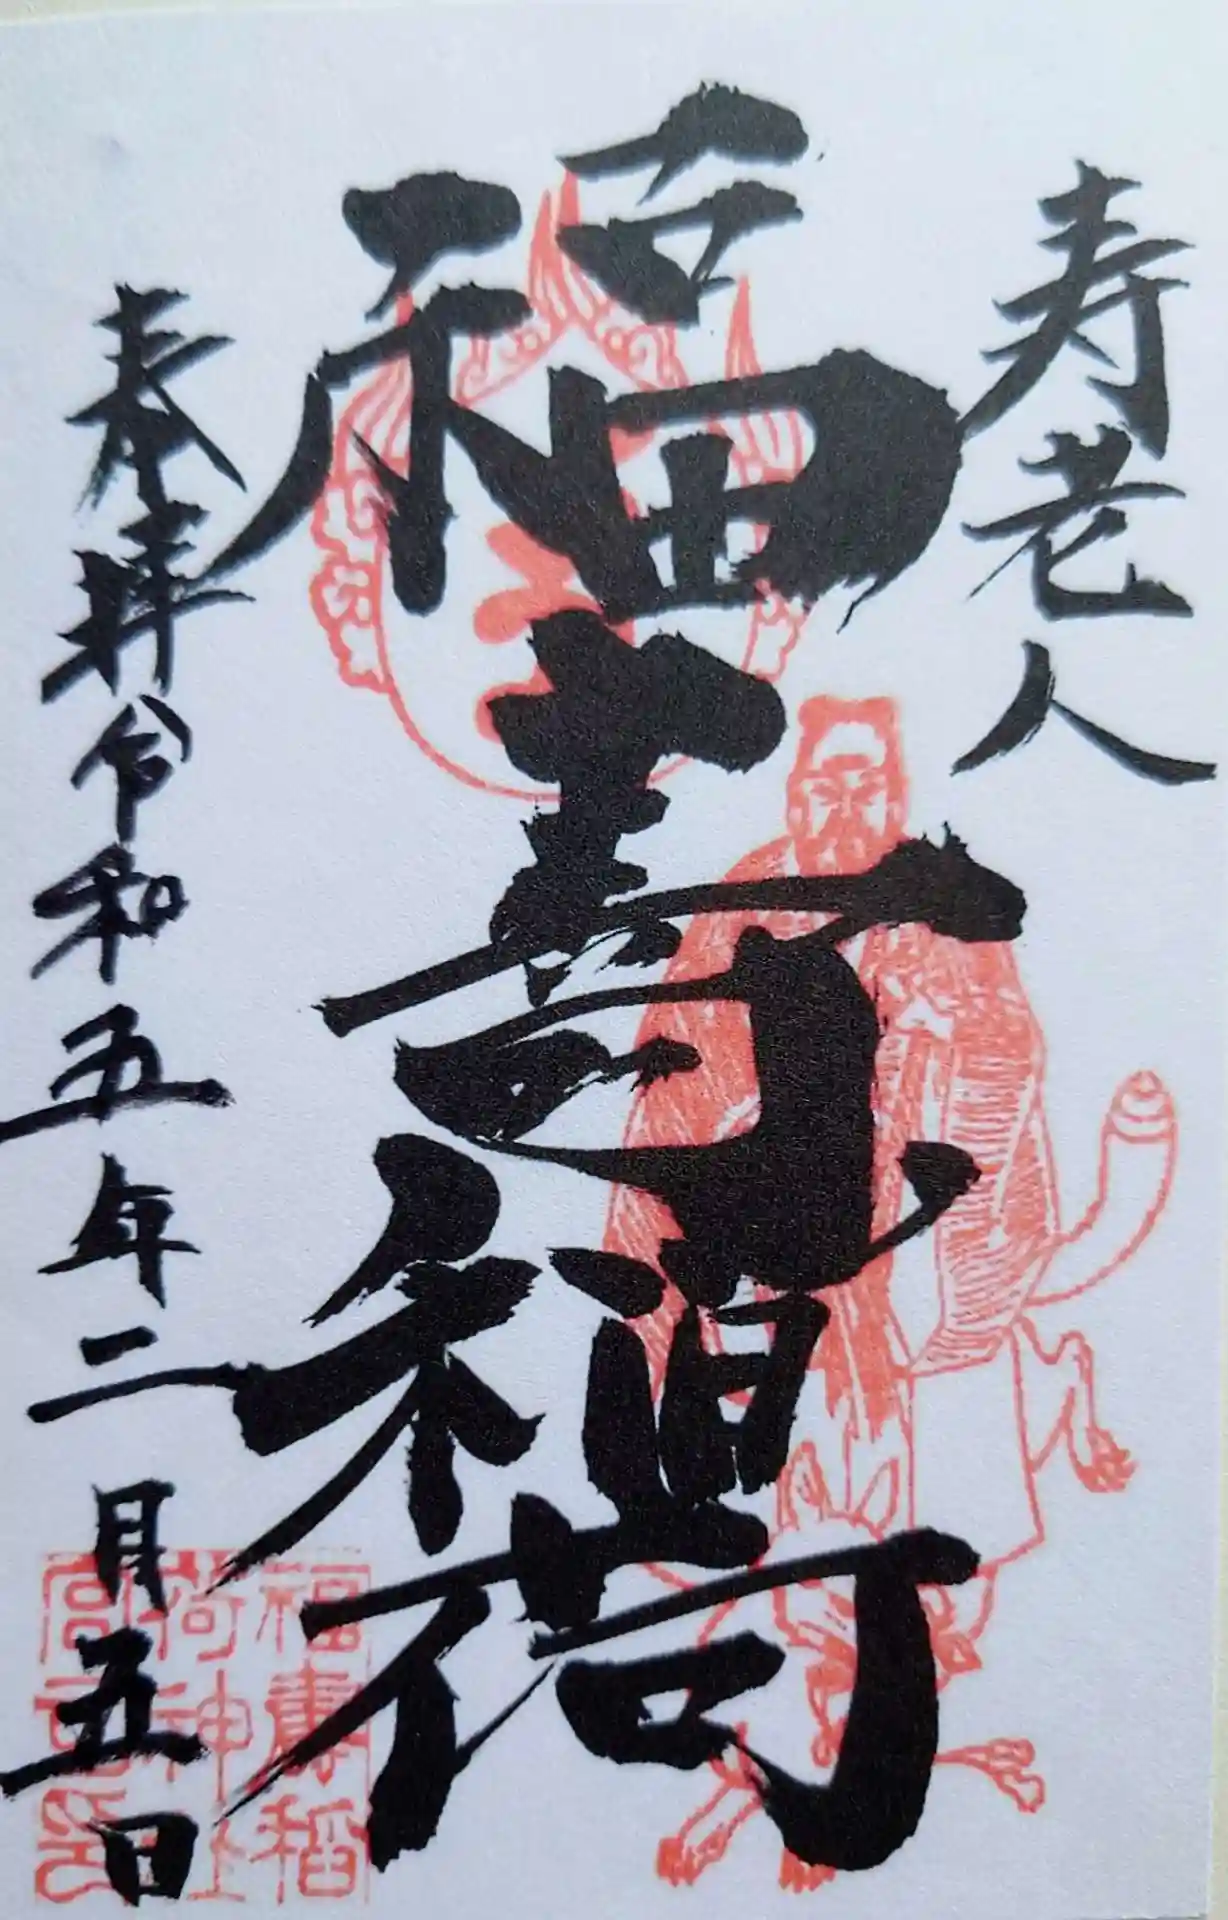 寿老人
福壽稲荷
奉拝 令和五年二月五日
福壽稲
荷神社
宮司印